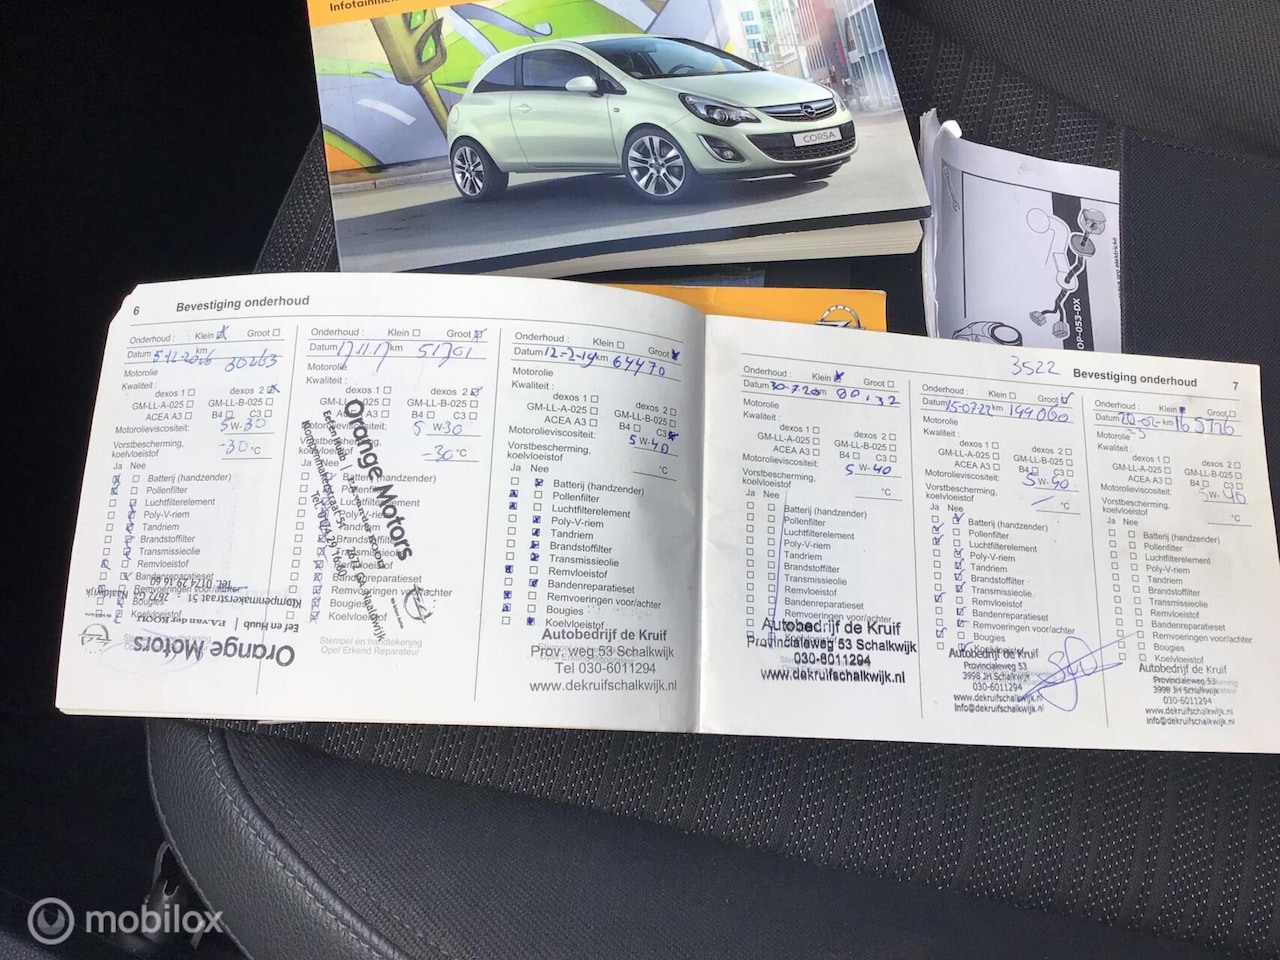 Infotainment
CORSA
OP-053-DX
6 Bevestiging onderhoud
Onderhoud : Klein ☒ Groot ☐
Datum 5-12-2016 km 30263
Motorolie
Kwaliteit :
dexos 1 ☐ dexos 2 ☒
GM-LL-A-025 ☐ GM-LL-B-025 ☐
ACEA A3 ☐ B4 ☐ C3 ☐
Motorolieviscositeit: 5 W-30
Vorstbescherming,
koelvloeistof -30 °C
Ja Nee
Batterij (handzender)
Pollenfilter
Luchtfilterelement
Poly-V-riem
Tandriem
Brandstoffilter
Transmissieolie
Remvloeistof
Bandenreparatieset
Remvoeringen voor/achter
Bougies
Koelvloeistof
Orange Motors
Eef en Huub | P.A. van der KOOIJ
Klompenmakerstraat 51 - 2672 GA Naaldwijk
Tel. 0174 29 16 60
Onderhoud : Klein ☐ Groot ☒
Datum 17.11.17 km 51701
Motorolie
Kwaliteit :
dexos 1 ☐ dexos 2 ☒
GM-LL-A-025 ☐ GM-LL-B-025 ☐
ACEA A3 ☐ B4 ☐ C3 ☐
Motorolieviscositeit: 5 W-30
Vorstbescherming,
koelvloeistof -30 °C
Ja Nee
Batterij (handzender)
Pollenfilter
Luchtfilterelement
Poly-V-riem
Tandriem
Brandstoffilter
Transmissieolie
Remvloeistof
Bandenreparatieset
Remvoeringen voor/achter
Bougies
Koelvloeistof
Orange Motors
Stempel en handtekening
Opel Erkend Reparateur
Onderhoud : Klein ☐ Groot ☒
Datum 12-2-19 km 64470
Motorolie
Kwaliteit :
dexos 1 ☐ dexos 2 ☐
GM-LL-A-025 ☐ GM-LL-B-025 ☐
ACEA A3 ☐ B4 ☐ C3 ☒
Motorolieviscositeit: 5 W-40
Vorstbescherming,
koelvloeistof °C
Ja Nee
Batterij (handzender)
Pollenfilter
Luchtfilterelement
Poly-V-riem
Tandriem
Brandstoffilter
Transmissieolie
Remvloeistof
Bandenreparatieset
Remvoeringen voor/achter
Bougies
Koelvloeistof
Autobedrijf de Kruif
Prov. weg 53 Schalkwijk
Tel 030-6011294
www.dekruifschalkwijk.nl
3522 Bevestiging onderhoud 7
Onderhoud : Klein ☒ Groot ☐
Datum 30-7-20 km
Motorolie
Kwaliteit :
dexos 1 ☐ dexos 2 ☐
GM-LL-A-025 ☐ GM-LL-B-025 ☐
ACEA A3 ☐ B4 ☐ C3 ☐
Motorolieviscositeit: 5 W-40
Vorstbescherming,
koelvloeistof °C
Ja Nee
Batterij (handzender)
Pollenfilter
Luchtfilterelement
Poly-V-riem
Tandriem
Brandstoffilter
Transmissieolie
Remvloeistof
Bandenreparatieset
Remvoeringen voor/achter
Autobedrijf de Kruif
Provincialeweg 53 Schalkwijk
030-6011294
www.dekruifschalkwijk.nl
Onderhoud : Klein ☐ Groot ☒
Datum 15-07-22 km 149060
Motorolie
Kwaliteit :
dexos 1 ☐ dexos 2 ☐
GM-LL-A-025 ☐ GM-LL-B-025 ☐
ACEA A3 ☐ B4 ☐ C3 ☐
Motorolieviscositeit: 5 W-40
Vorstbescherming,
koelvloeistof °C
Ja Nee
Batterij (handzender)
Pollenfilter
Luchtfilterelement
Poly-V-riem
Tandriem
Brandstoffilter
Transmissieolie
Remvloeistof
Bandenreparatieset
Remvoeringen voor/achter
Bougies
Koelvloeistof
Autobedrijf de Kruif
Provincialeweg 53
3998 JH Schalkwijk
030-6011294
www.dekruifschalkwijk.nl
info@dekruifschalkwijk.nl
Onderhoud : Klein Groot ☐
Datum km
Motorolie
Kwaliteit :
dexos 1 ☐ dexos 2 ☐
GM-LL-A-025 ☐ GM-LL-B-025 ☐
ACEA A3 ☐ B4 ☐ C3 ☐
Motorolieviscositeit: 5 W-40
Vorstbescherming,
koelvloeistof °C
Ja Nee
Batterij (handzender)
Pollenfilter
Luchtfilterelement
Poly-V-riem
Tandriem
Brandstoffilter
Transmissieolie
Remvloeistof
Bandenreparatieset
Remvoeringen voor/achter
Bougies
Koelvloeistof
Autobedrijf de Kruif
Provincialeweg 53
3998 JH Schalkwijk
030-6011294
www.dekruifschalkwijk.nl
info@dekruifschalkwijk.nl
mobilox